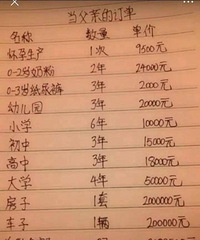 当父亲的订单
名称 数量 单价
怀孕生产 1次 9500元
0-2岁奶粉 2年 24000元
0-3岁纸尿裤 3年 2000元
幼儿园 3年 20000元
小学 6年 10000元
初中 3年 15000元
高中 3年 18000元
大学 4年 50000元
房子 1套 2000000元
车子 1辆 200000元